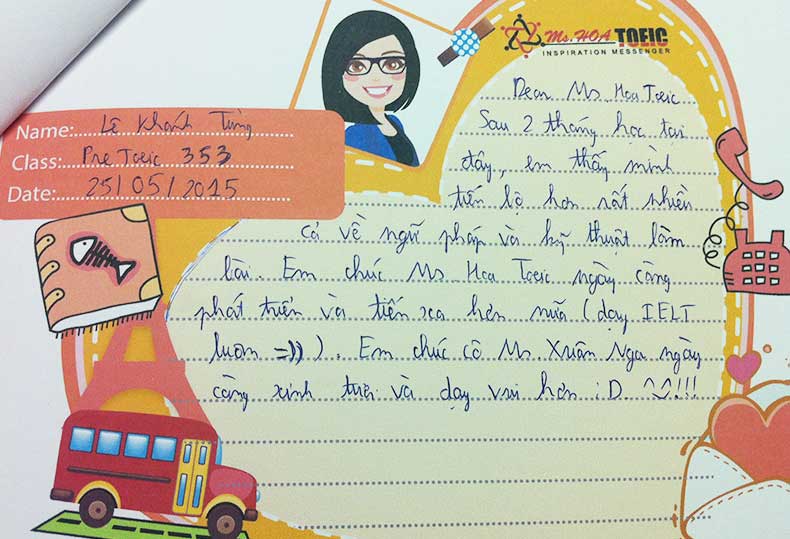 Ms.HOA TOEIC
INSPIRATION MESSENGER
Name: Lê Khánh Tùng
Class: Pre Toeic 353
Date: 25/05/2015
Dear Ms. Hoa Toeic
Sau 2 tháng học tại
đây, em thấy mình
tiến bộ hơn rất nhiều
cả về ngữ pháp và kỹ thuật làm
bài. Em chúc Ms. Hoa Toeic ngày càng
phát triển và tiến xa hơn nữa (dạy IELT
luôn =))). Em chúc cô Ms. Xuân Nga ngày
càng xinh tươi và dạy vui hơn :D ^^!!!